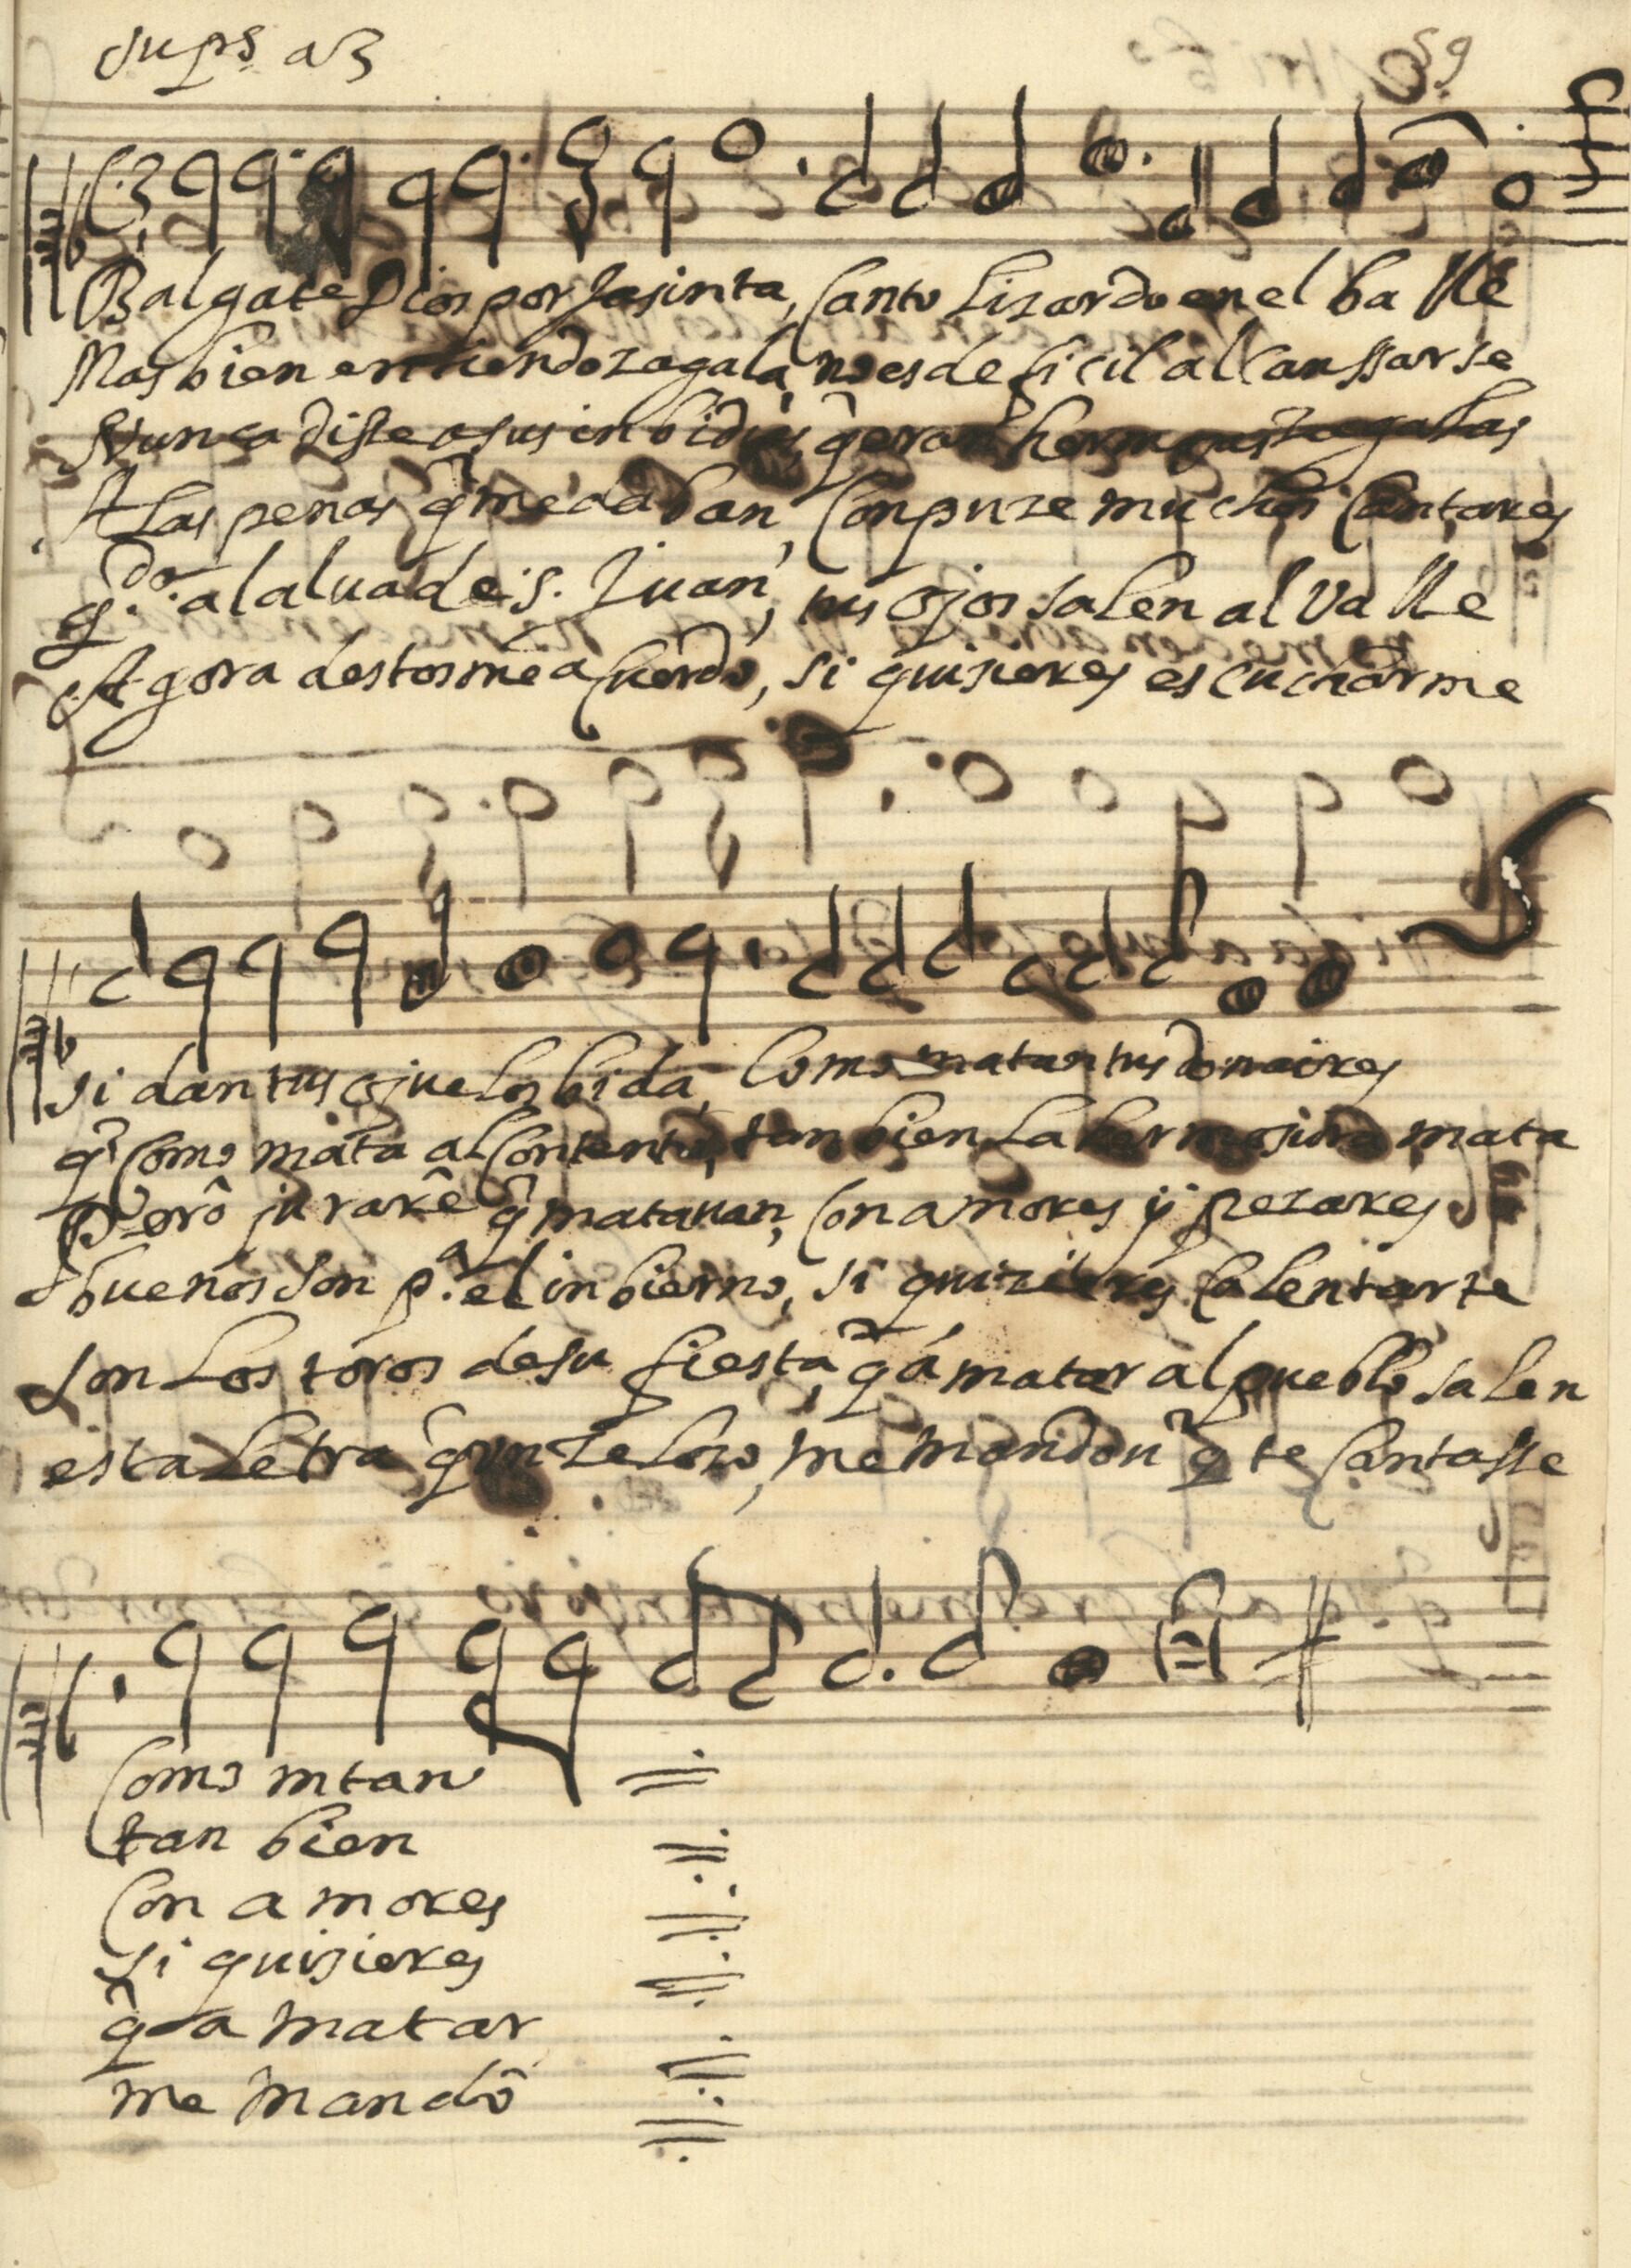 sups a3 59
Balgate Dios por Jasinta, canto Lizardo en el balle
Mas bien entiendo zagala, no es deficil alcanssarse
Nunca diste a sus inbidias, q̂ eran hermosas zagalas
A las penas q̂ me daban, conpuze muchos cantares
q.do al alua de S. Juan, tus ojos salen al valle
Agora destos me acuerdo, si quisieres escucharme
si dan tus ojuelos bida, como matan tus donaires
q̂ como mata al contento, tanbien la hermosura mata
Perô jurarê q̂ matauan, con amores ÿ pezares
buenos son p.a el inbierno, si quizieres calentarte
son los toros de su fiesta, q̂ á matar al pueblo salen
esta letra q̂ un zeloso, me mandou q̂ te cantasse
Como mtan
tan bien
con amores
si quisieres
q̂ a matar
me mandô